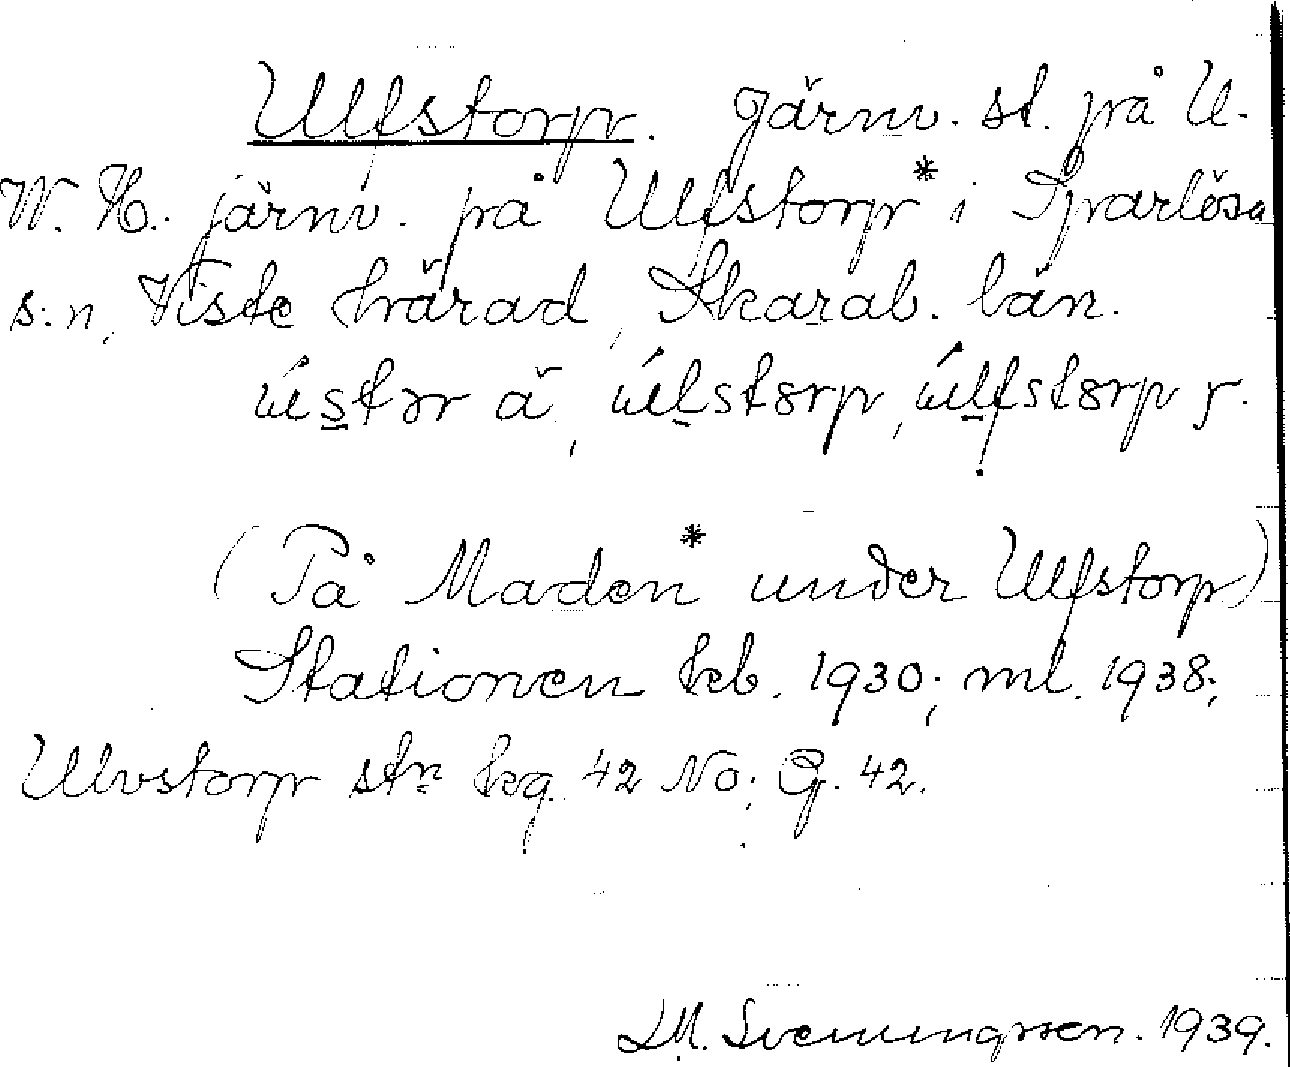 Ulfstorp. Järnv. st. på U.
W. H. järnv. på Ulfstorp* i Sparlösa
s:n, Viste härad, Skarab. län.
ústər ä, úlstorp, úlfstorp y.
(På Maden* under Ulfstorp)
Stationen kb. 1930; ml. 1938;
Ulvstorp stn kg. 42 No; G. 42.
LM. Svenungsson. 1939.